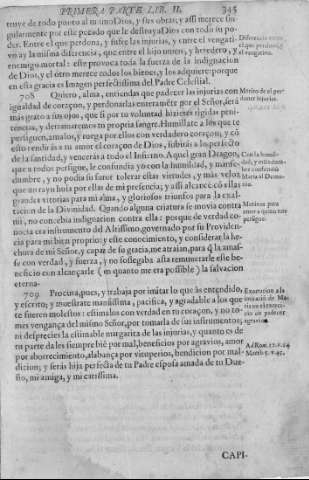 PRIMERA PARTE LIB. II. 345
truye de todo punto al mismo Dios, y sus obras; y assi merece sin-
gularmente por esse pecado que le destruya Dios con todo su po-
der. Entre el que perdona, y sufre las injurias, y entre el vengati-
vo ay la misma diferencia, que entre el hijo unico, y heredero, y el
enemigo mortal: este provoca toda la fuerça de la indignacion
de Dios, y el otro merece todos los bienes, y los adquiere: porque
en esta gracia es Imagen perfectissima del Padre Celestial.
Diferencia entre
el que perdona, y
el vengativo.
708. Quiero, alma, entiendas que padecer las injurias con
igualdad de coraçon, y perdonarlas enteramēte por el Señor, serà
mas grato a sus ojos, que si por tu voluntad hizieses rigidas peni-
tencias, y derramaremos tu propia sangre. Humillate a los que te
persiguen, amalos, y ruega por ellos con verdadero coraçon; y cō
esto rendiràs a tu amor el coraçon de Dios, subiràs a lo perfecto
de la santidad, y venceràs a todo el Infierno. A aquel gran Dragon,
que a todos persigue, le confundia yo con la humildad, y manse-
dumbre, y no podia su furor tolerar estas virtudes, y mas veloz
que un rayo huia por ellas de mi presencia; y assi alcancè cō ellas
grandes vitorias para mi alma, y gloriosos triunfos para la exal-
tacion de la Divinidad. Quando alguna criatura se movia contra
mi, no concebia indignacion contra ella: porque de verdad co-
nocia era instrumento del Altissimo, governado por su Providen-
cia para mi bien proprio; y este conocimiento, y considerar, la he-
chura de mi Señor, y capaz de su gracia, me atraian, para q̃ la amas-
se con verdad, y fuerça, y no sossegaba asta remunerarle esse be-
neficio con alcançarle (en quanto me era possible) la salvacion
eterna.
Motivos de el per-
donar injurias.
Con la humil-
dad, y mansedum-
bre confundia
Maria al Demo-
nio.
Motivos para
amor a quien nos
persigue.
709. Procura, pues, y trabaja por imitar lo que às entendido,
y escrito; y muestrate mansissima, pacifica, y agradable a los que
te fueren molestos: estimalos con verdad en tu coraçon, y no to-
mes vengança del mismo Señor, por tomarla de sus instrumentos;
ni desprecies la estimable margarita de las injurias, y quanto es de
tu parte dales siempre biē por mal, beneficios por agravios, amor
por aborrecimiento, alabança por vituperios, bendicion por mal-
dicion; y seràs hija perfecta de tu Padre esposa amada de tu Due-
ño, mi amiga, y mi carissima.
Exortacion a la
imitacion de Ma-
ria
en padecer
agravios.
Ad Rom. 12. v. 14
Matth. 5. v. 45.
CAPI-